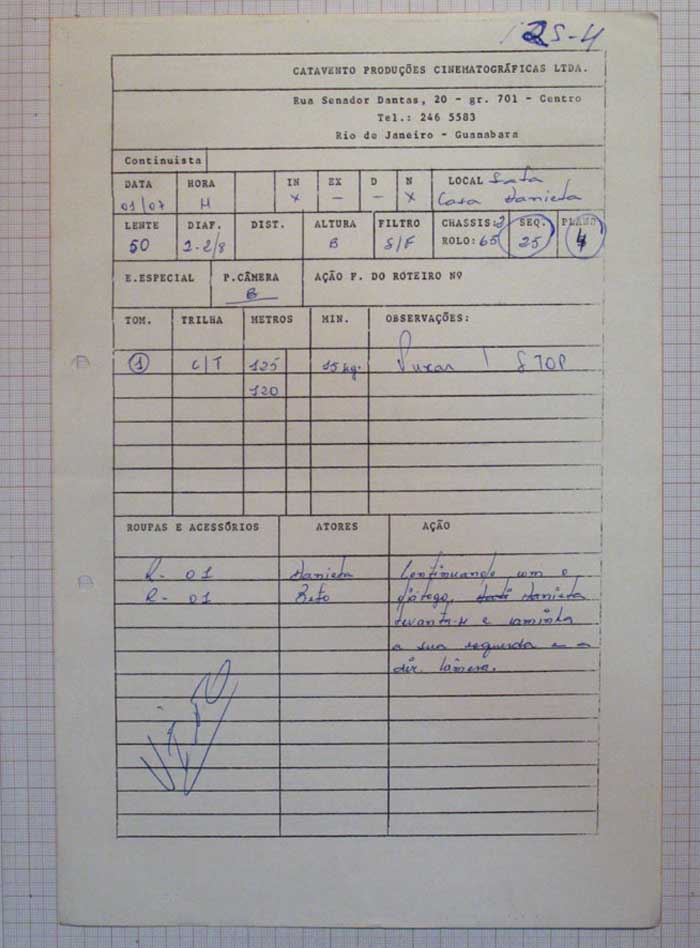 25-4
CATAVENTO PRODUÇÕES CINEMATOGRÁFICAS LTDA.
Rua Senador Dantas, 20 - gr. 701 - Centro
Tel.: 246 5583
Rio de Janeiro - Guanabara
Continuista
DATA HORA IN EX D N LOCAL Sala
01/07 M X - - X Casa Daniela
LENTE DIAF. DIST. ALTURA FILTRO CHASSIS: 2 SEQ. PLANO
50 2-2/8 B S/F ROLO: 65 25 4
E.ESPECIAL P.CÂMERA AÇÃO F. DO ROTEIRO Nº
B
TOM. TRILHA METROS MIN. OBSERVAÇÕES:
1 C/T 125 15 Puxar 1 STOP
120
ROUPAS E ACESSÓRIOS ATORES AÇÃO
R- 01 Daniela Continuando com o
R- 01 Beto diálogo, Daniela
levanta-se e caminha
a sua esquerda e a
dir. câmera.